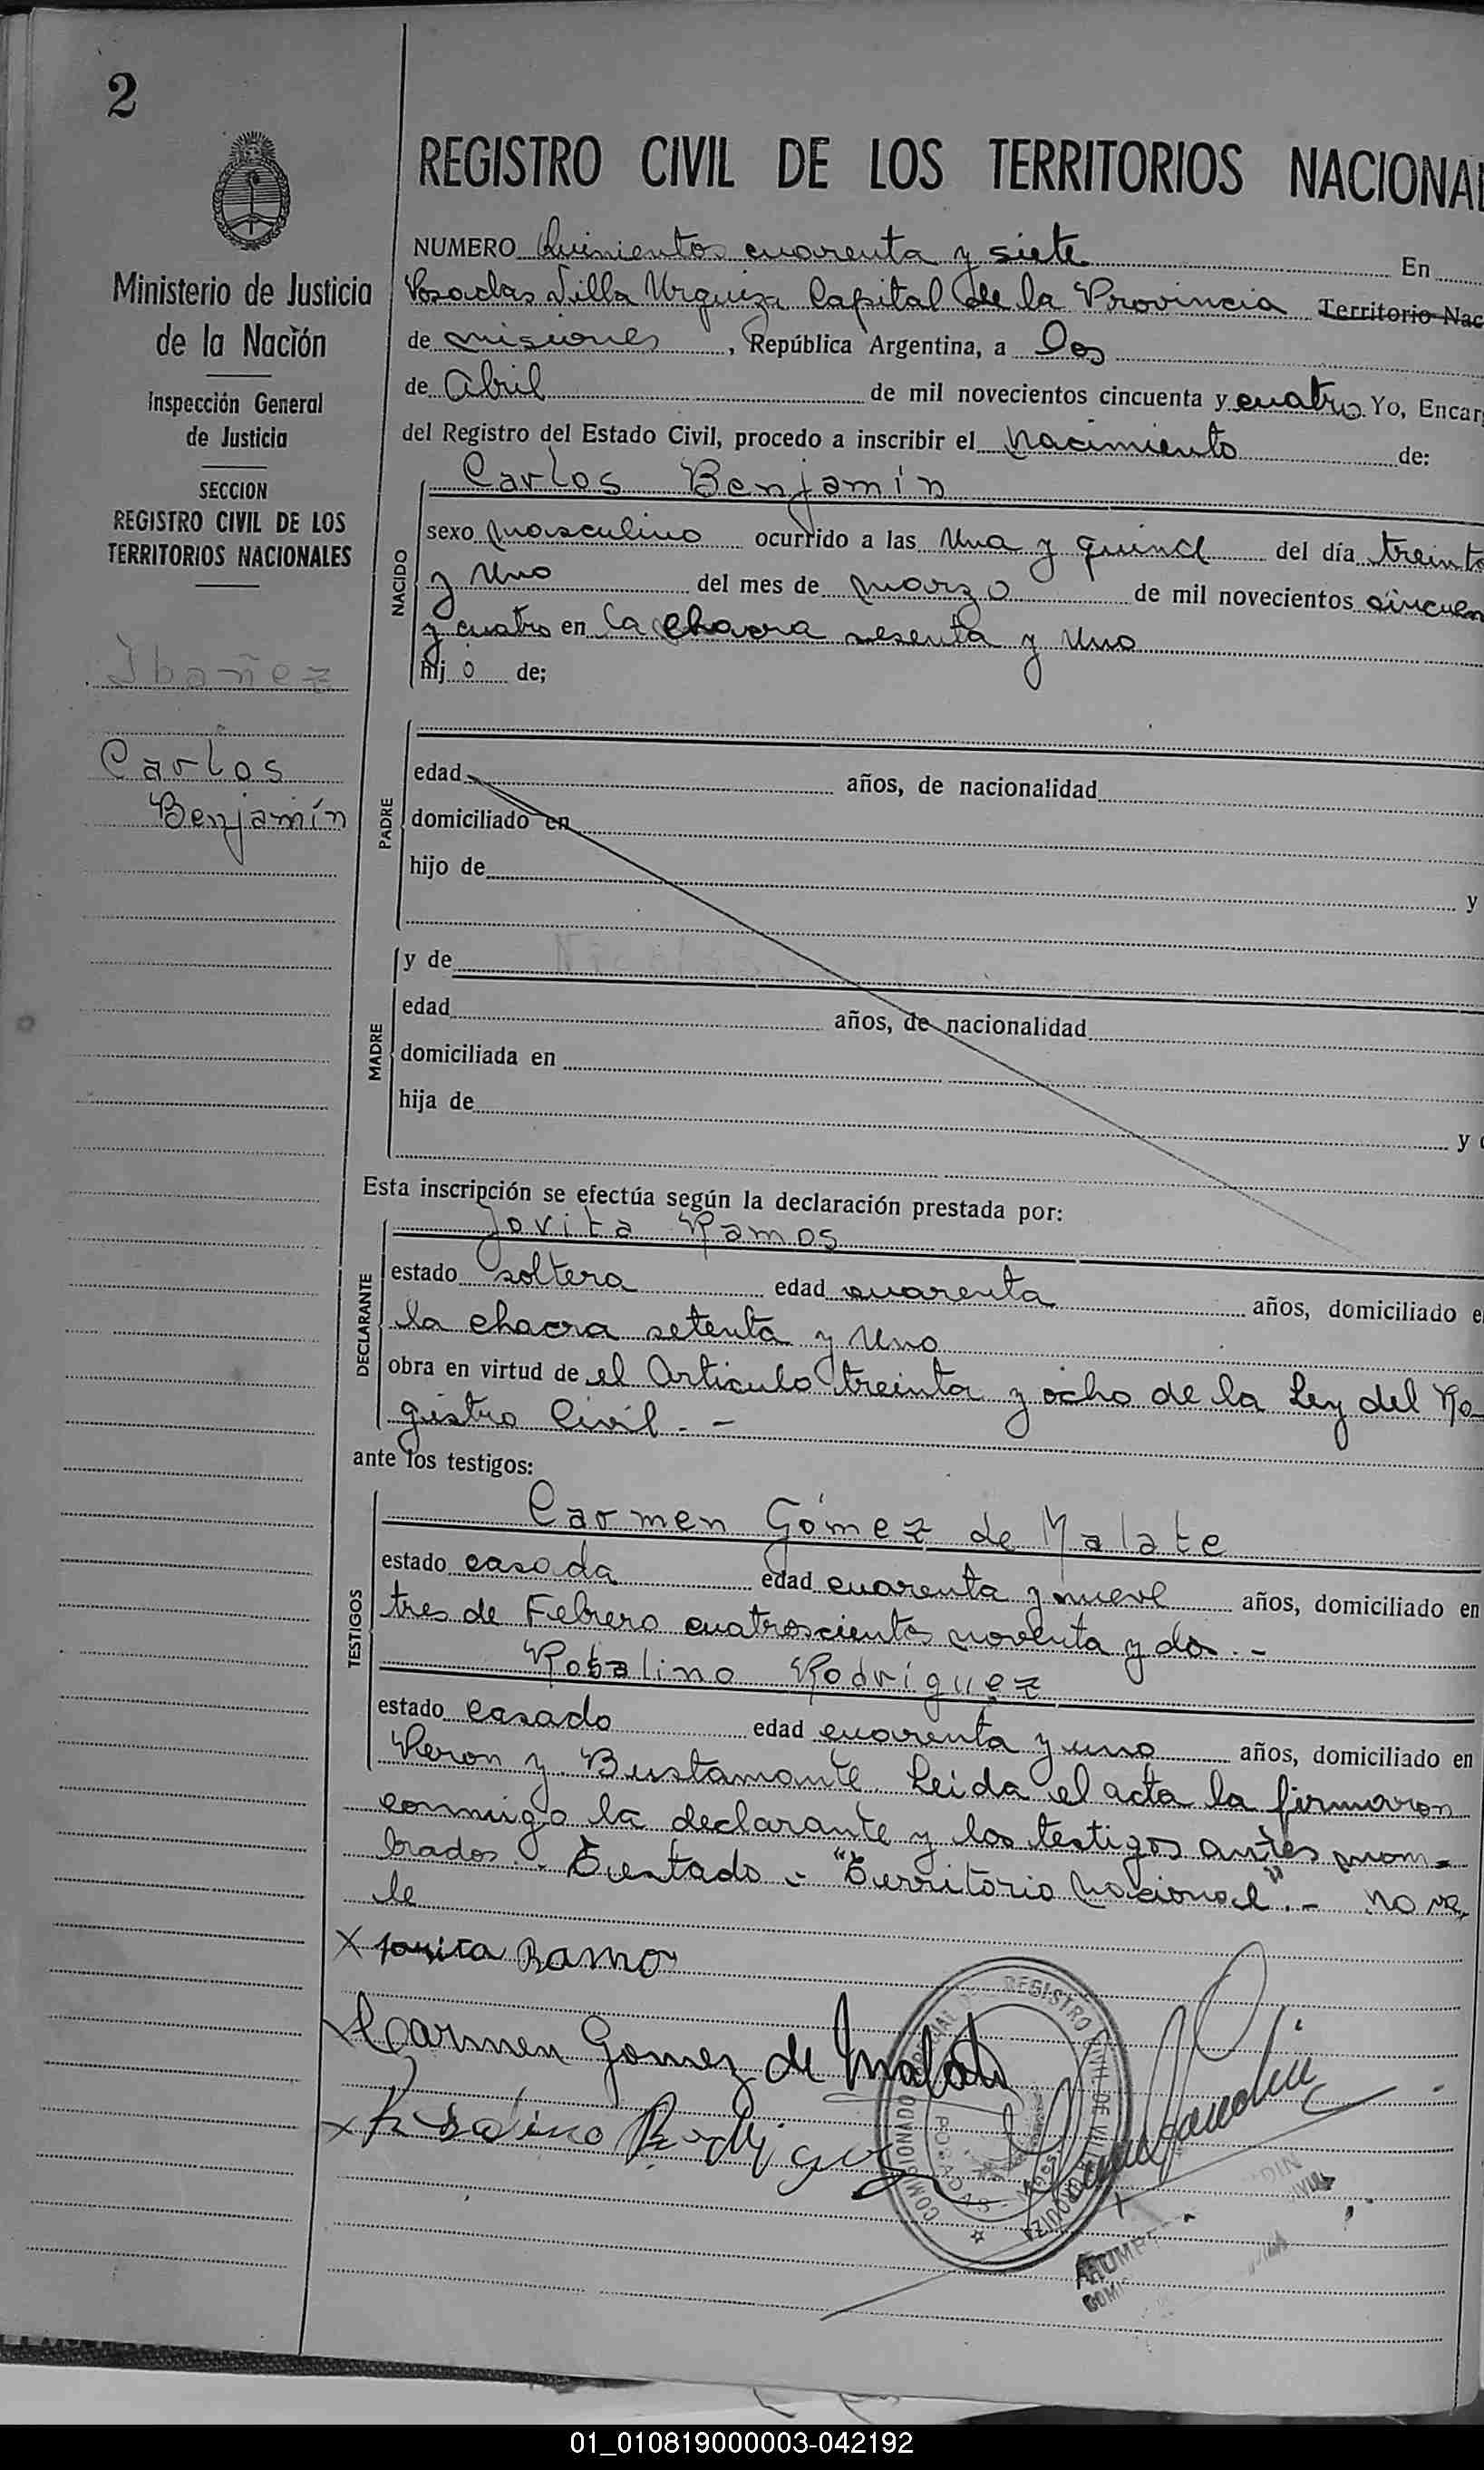 2
REGISTRO CIVIL DE LOS TERRITORIOS NACIONAL
NUMERO Quinientos cuarenta y siete En
Posadas Villa Urquiza Capital de la Provincia Territorio Nac
de misiones, República Argentina, a Dos
de Abril de mil novecientos cincuenta y cuatro Yo, Encar
del Registro del Estado Civil, procedo a inscribir el nacimiento de:
Ministerio de Justicia
de la Nación
Inspección General
de Justicia
SECCION
REGISTRO CIVIL DE LOS
TERRITORIOS NACIONALES
Ibañez
Carlos
Benjamín
NACIDO
Carlos Benjamín
sexo masculino ocurrido a las Una y quince del día treinta
y Uno del mes de marzo de mil novecientos cincuen
y cuatro en la chacra sesenta y Uno
hij o de;
PADRE
edad años, de nacionalidad
domiciliado en
hijo de y
MADRE
y de
edad años, de nacionalidad
domiciliada en
hija de y
Esta inscripción se efectúa según la declaración prestada por:
DECLARANTE
Jovita Ramos
estado soltera edad cuarenta años, domiciliado e
la chacra setenta y Uno
obra en virtud de el Articulo treinta y ocho de la Ley del Re
gistro Civil. -
ante los testigos:
TESTIGOS
Carmen Gómez de Malate
estado casada edad cuarenta y nueve años, domiciliado en
tres de Febrero cuatroscientos noventa y dos. -
Rosalino Rodríguez
estado casado edad cuarenta y uno años, domiciliado en
Peron y Bustamante Leida el acta la firmaron
conmigo la declarante y los testigos antes nom=
brados. - Testado - "Territorio Nacional". - no va
le
X Jovita Ramos
X Carmen Gomez de Malate
X Rosalino Rodriguez
REGISTRO CIVIL DE VILLA URQUIZA
POSADAS
01_010819000003-042192